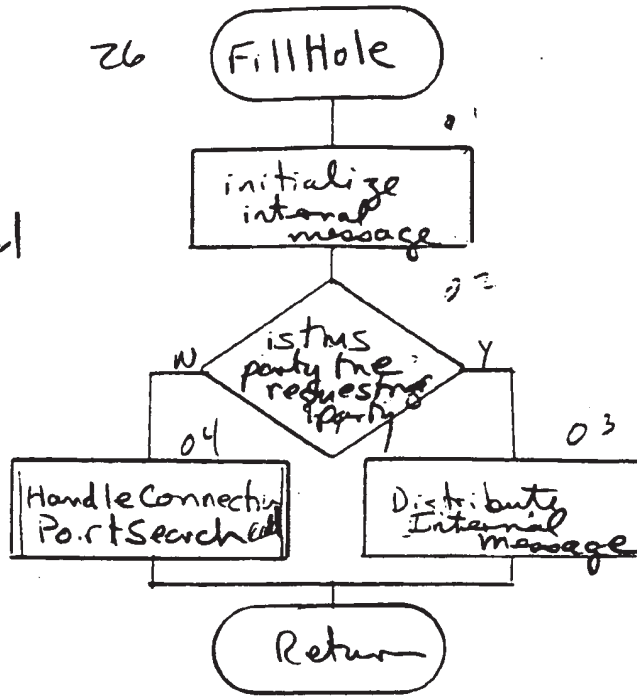 26 FillHole
initialize
internal
message
is this
party the
requesting
party?
N
Y
04
03
Handle Connection
Port Search
Distribute
Internal
Message
Return